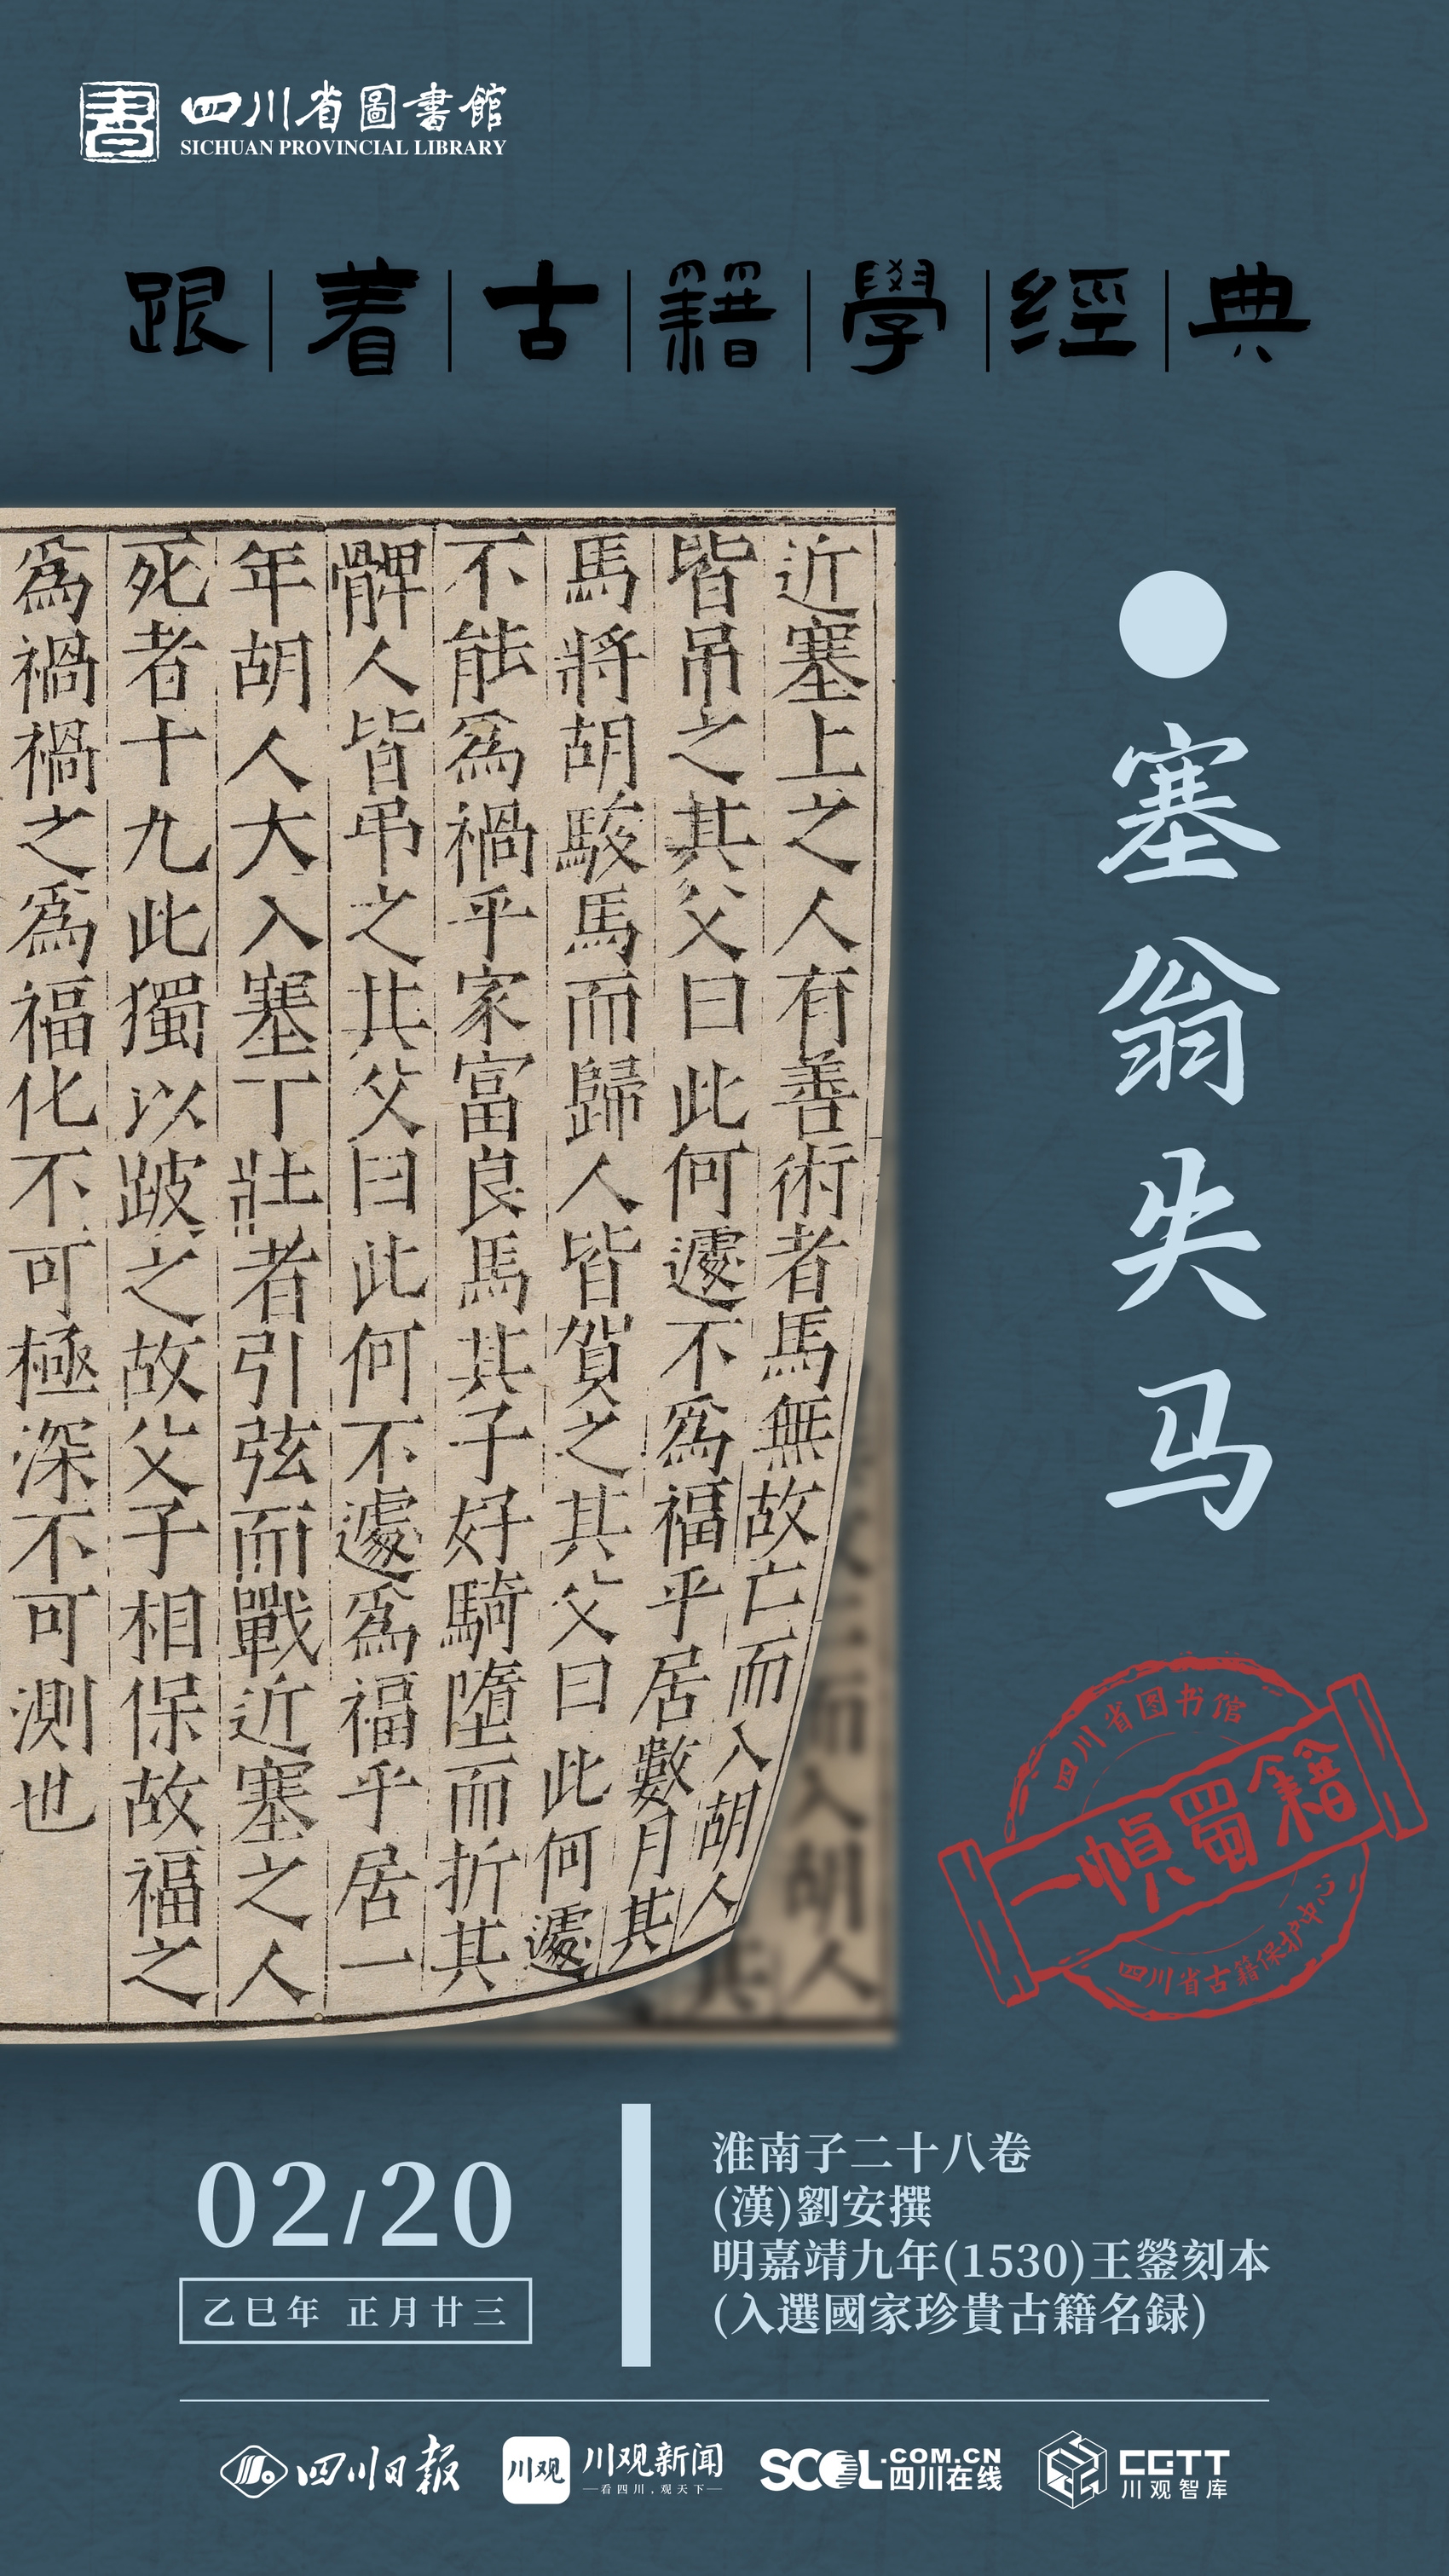 書
四川省圖書館
SICHUAN PROVINCIAL LIBRARY
跟着古籍學經典
近塞上之人有善術者馬無故亡而入胡人
皆吊之其父曰此何遽不爲福乎居數月其
馬將胡駿馬而歸人皆賀之其父曰此何遽
不能爲禍乎家富良馬其子好騎墮而折其
髀人皆弔之其父曰此何不遽爲福乎居一
年胡人大入塞丁壯者引弦而戰近塞之人
死者十九此獨以跛之故父子相保故福之
爲禍禍之爲福化不可極深不可測也
塞翁失马
四川省图书馆
一幀蜀籍
四川省古籍保护中心
02/20
乙巳年 正月廿三
淮南子二十八卷
(漢)劉安撰
明嘉靖九年(1530)王鎣刻本
(入選國家珍貴古籍名録)
四川日报
川观
川观新闻
看四川,观天下
SCOL.COM.CN
四川在线
CGTT
川观智库